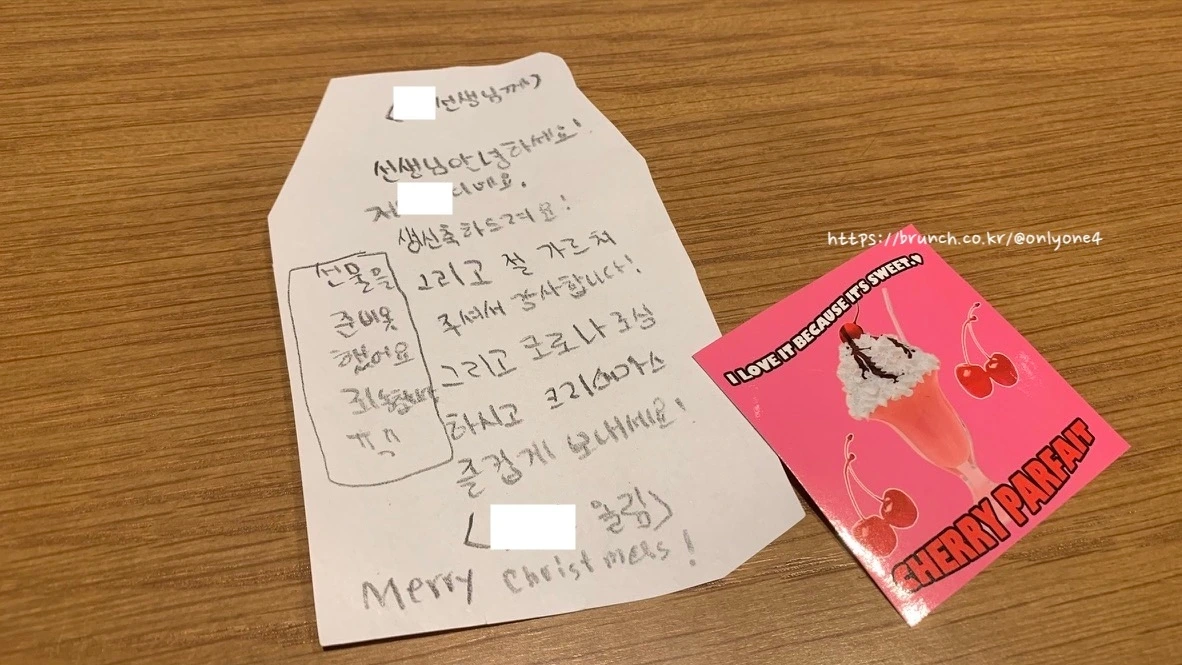 < 선생님께>
선생님안녕하세요!
저 이에요.
생신축하드려요!
그리고 절 가르쳐
주셔서 감사합니다!
그리고 코로나 조심
하시고 크리스마스
즐겁게 보내세요!
< 올림>
Merry Christmas!
선물을
준비못
했어요
죄송합니다
ㅠㅠ
https://brunch.co.kr/@onlyone4
I LOVE IT BECAUSE IT'S SWEET.♥
CHERRY PARFAIT